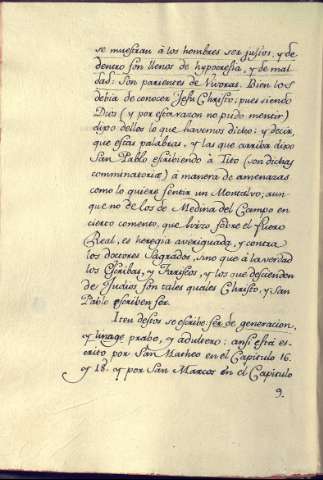 se muestran à los hombres ser justos, y de
dentro son llenos de hypocresia, y de mal
dad: son parientes de Vivoras. Bien los
debia de conocer Jesu Christo; pues siendo
Dios (y por esta razon no pudo mentir)
dixo dellos lo que havemos dicho; y decir,
que estas palabras, y las que arriba dixo
San Pablo escribiendo à Tito (son dichas
comminatorie) à manera de amenazas
como lo quiere sentir un Montalvo; aun
que no de los de Medina del Campo en
cierto comento, que hizo sobre el fuero
Real, es heregia averiguada, y contra
los doctores Sagrados, sino que à la verdad
los Escribas, y Fariseos, y los que descienden
de Judios son tales quales Christo, y San
Pablo escriben ser.
Iten destos se escribe ser de generacion,
y linage prabo, y adultero: ansi està es-
crito por San Matheo en el Capitulo 16.
y 18. y por San Marcos en el Capitulo
9.